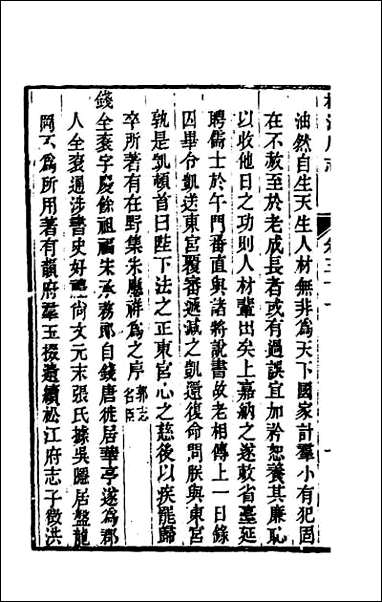 松江府志
油然自生天生人材無非為天下國家計羣小有犯固
在不赦至於老成長者或有過誤宜加矜恕養其廉恥
以收他日之功則人材輩出矣上嘉納之遂敕省臺延
聘儒士於午門番直與諸將說書故老相傳上一日錄
囚畢令凱送東宮覆審遞減之凱還復命問朕與東宮
孰是凱頓首曰陛下法之正東宮心之慈後以疾罷歸
卒所著有在野集朱應祥為之序郭志名臣
錢全衮字慶餘祖福朱承務郎自錢唐徙居華亭遂為郡
人全衮通涉書史好禮尙文元末張氏據吳隱居盤龍
岡不為所用著有韻府羣玉掇遺續松江府志子徵洪